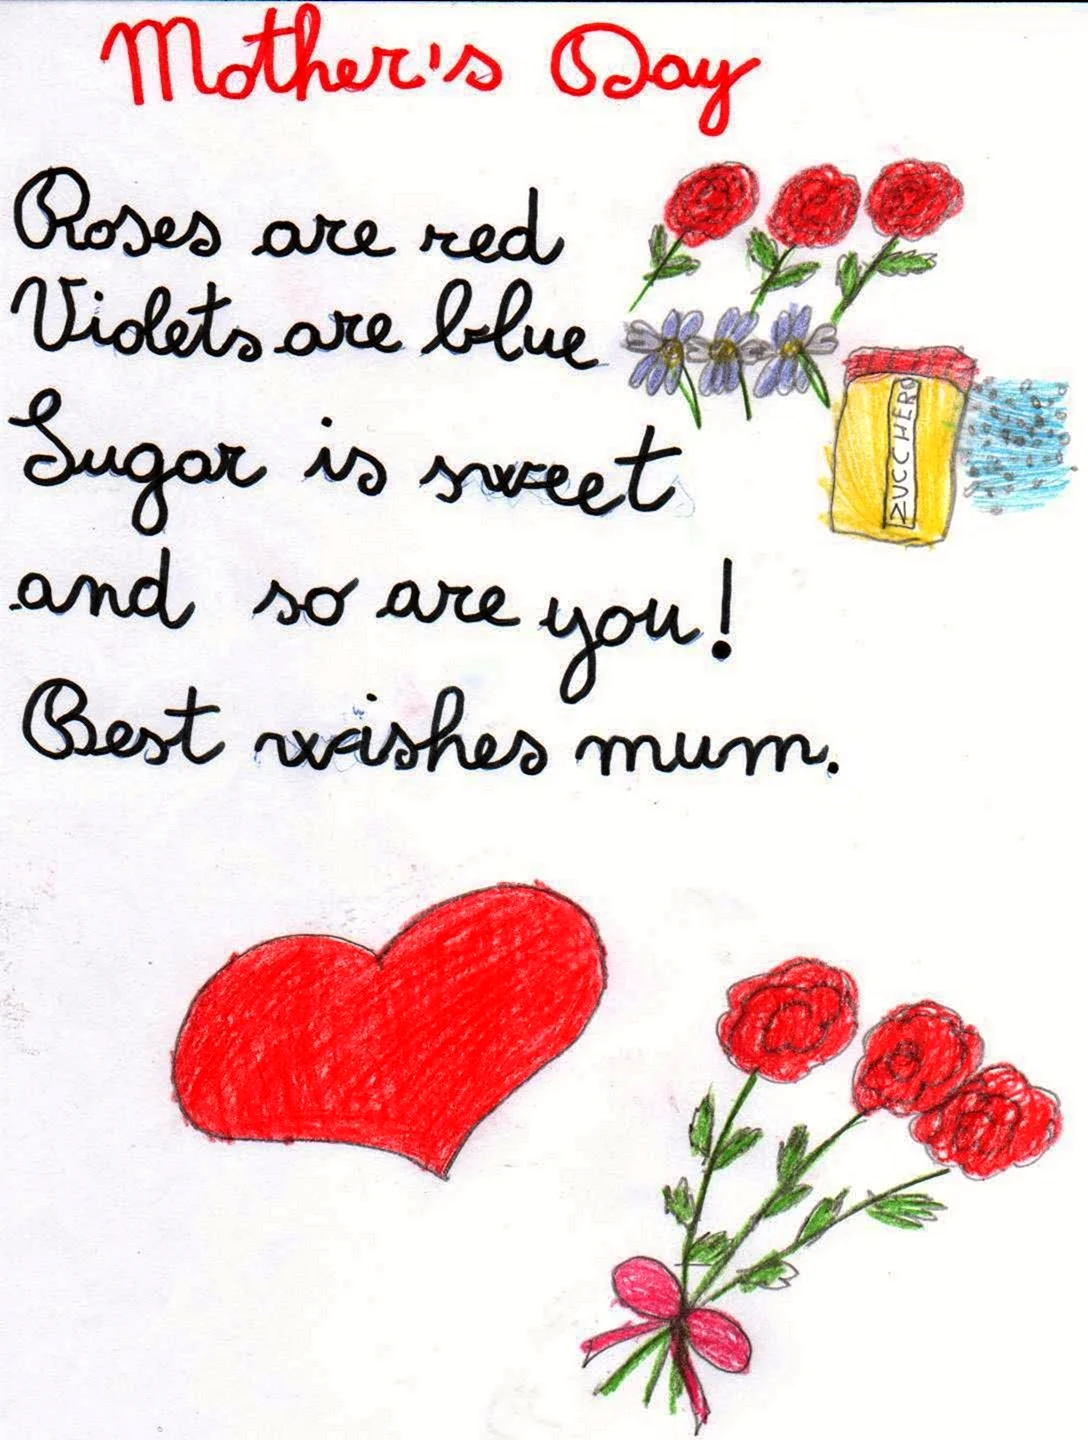 Mother's Day
Roses are red
Violets are blue
ZUCCHERO
Sugar is sweet
and so are you!
Best wishes mum.